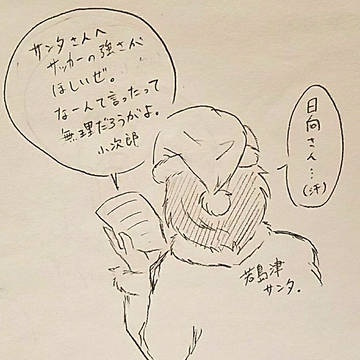 サンタさんへ
サッカーの強さが
ほしいぜ。
なーんて言ったって
無理だろうがよ。
小次郎
日向さん…
(汗)
若島津
サンタ。